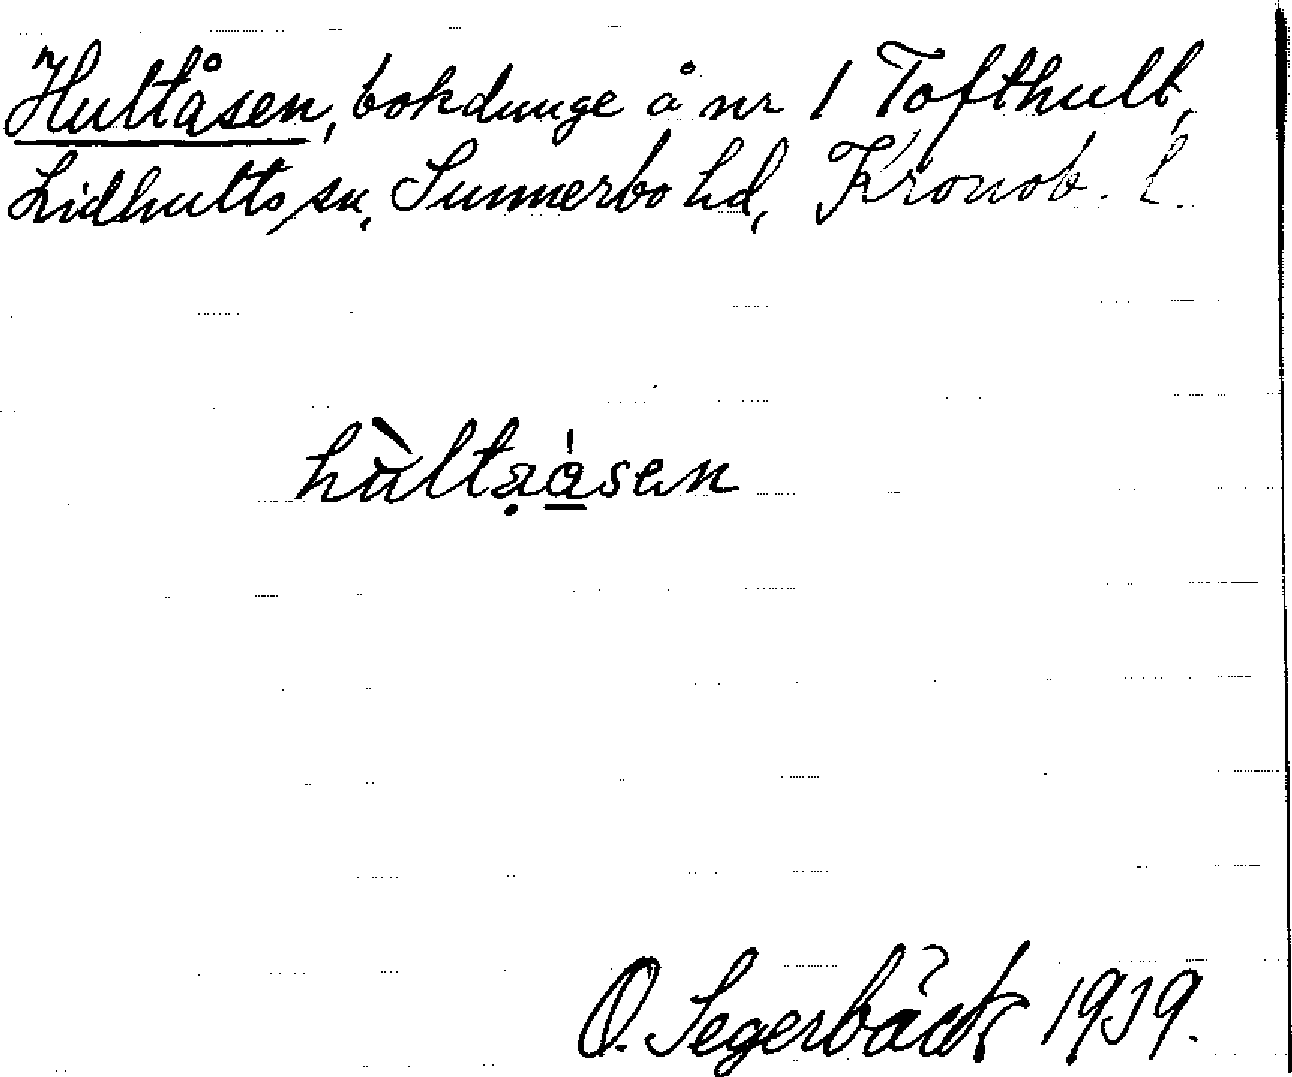 Hultåsen, bokdunge å nr 1 Tofthult,
Lidhults sn, Sunnerbo hd, Kronob. l.
hùltaåsen
O. Segerbäck 1939.